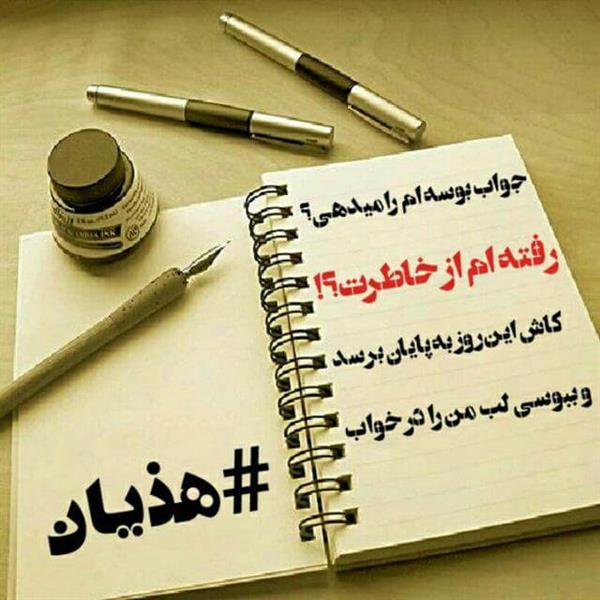 جواب بوسه ام را میدهی؟
رفته ام از خاطرت؟!
کاش این روز به پایان برسد
و ببوسی لب من را در خواب
#هذیان
INK